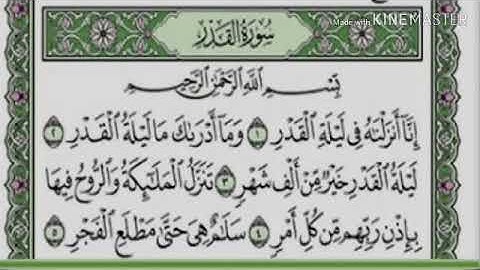 Made with KINEMASTER
سُورَةُ القَدْرِ
بِسْمِ ٱللَّهِ ٱلرَّحْمَٰنِ ٱلرَّحِيمِ
إِنَّآ أَنزَلْنَٰهُ فِى لَيْلَةِ ٱلْقَدْرِ ١ وَمَآ أَدْرَىٰكَ مَا لَيْلَةُ ٱلْقَدْرِ ٢
لَيْلَةُ ٱلْقَدْرِ خَيْرٌ مِّنْ أَلْفِ شَهْرٍ ٣ تَنَزَّلُ ٱلْمَلَٰٓئِكَةُ وَٱلرُّوحُ فِيهَا
بِإِذْنِ رَبِّهِم مِّن كُلِّ أَمْرٍ ٤ سَلَٰمٌ هِىَ حَتَّىٰ مَطْلَعِ ٱلْفَجْرِ ٥